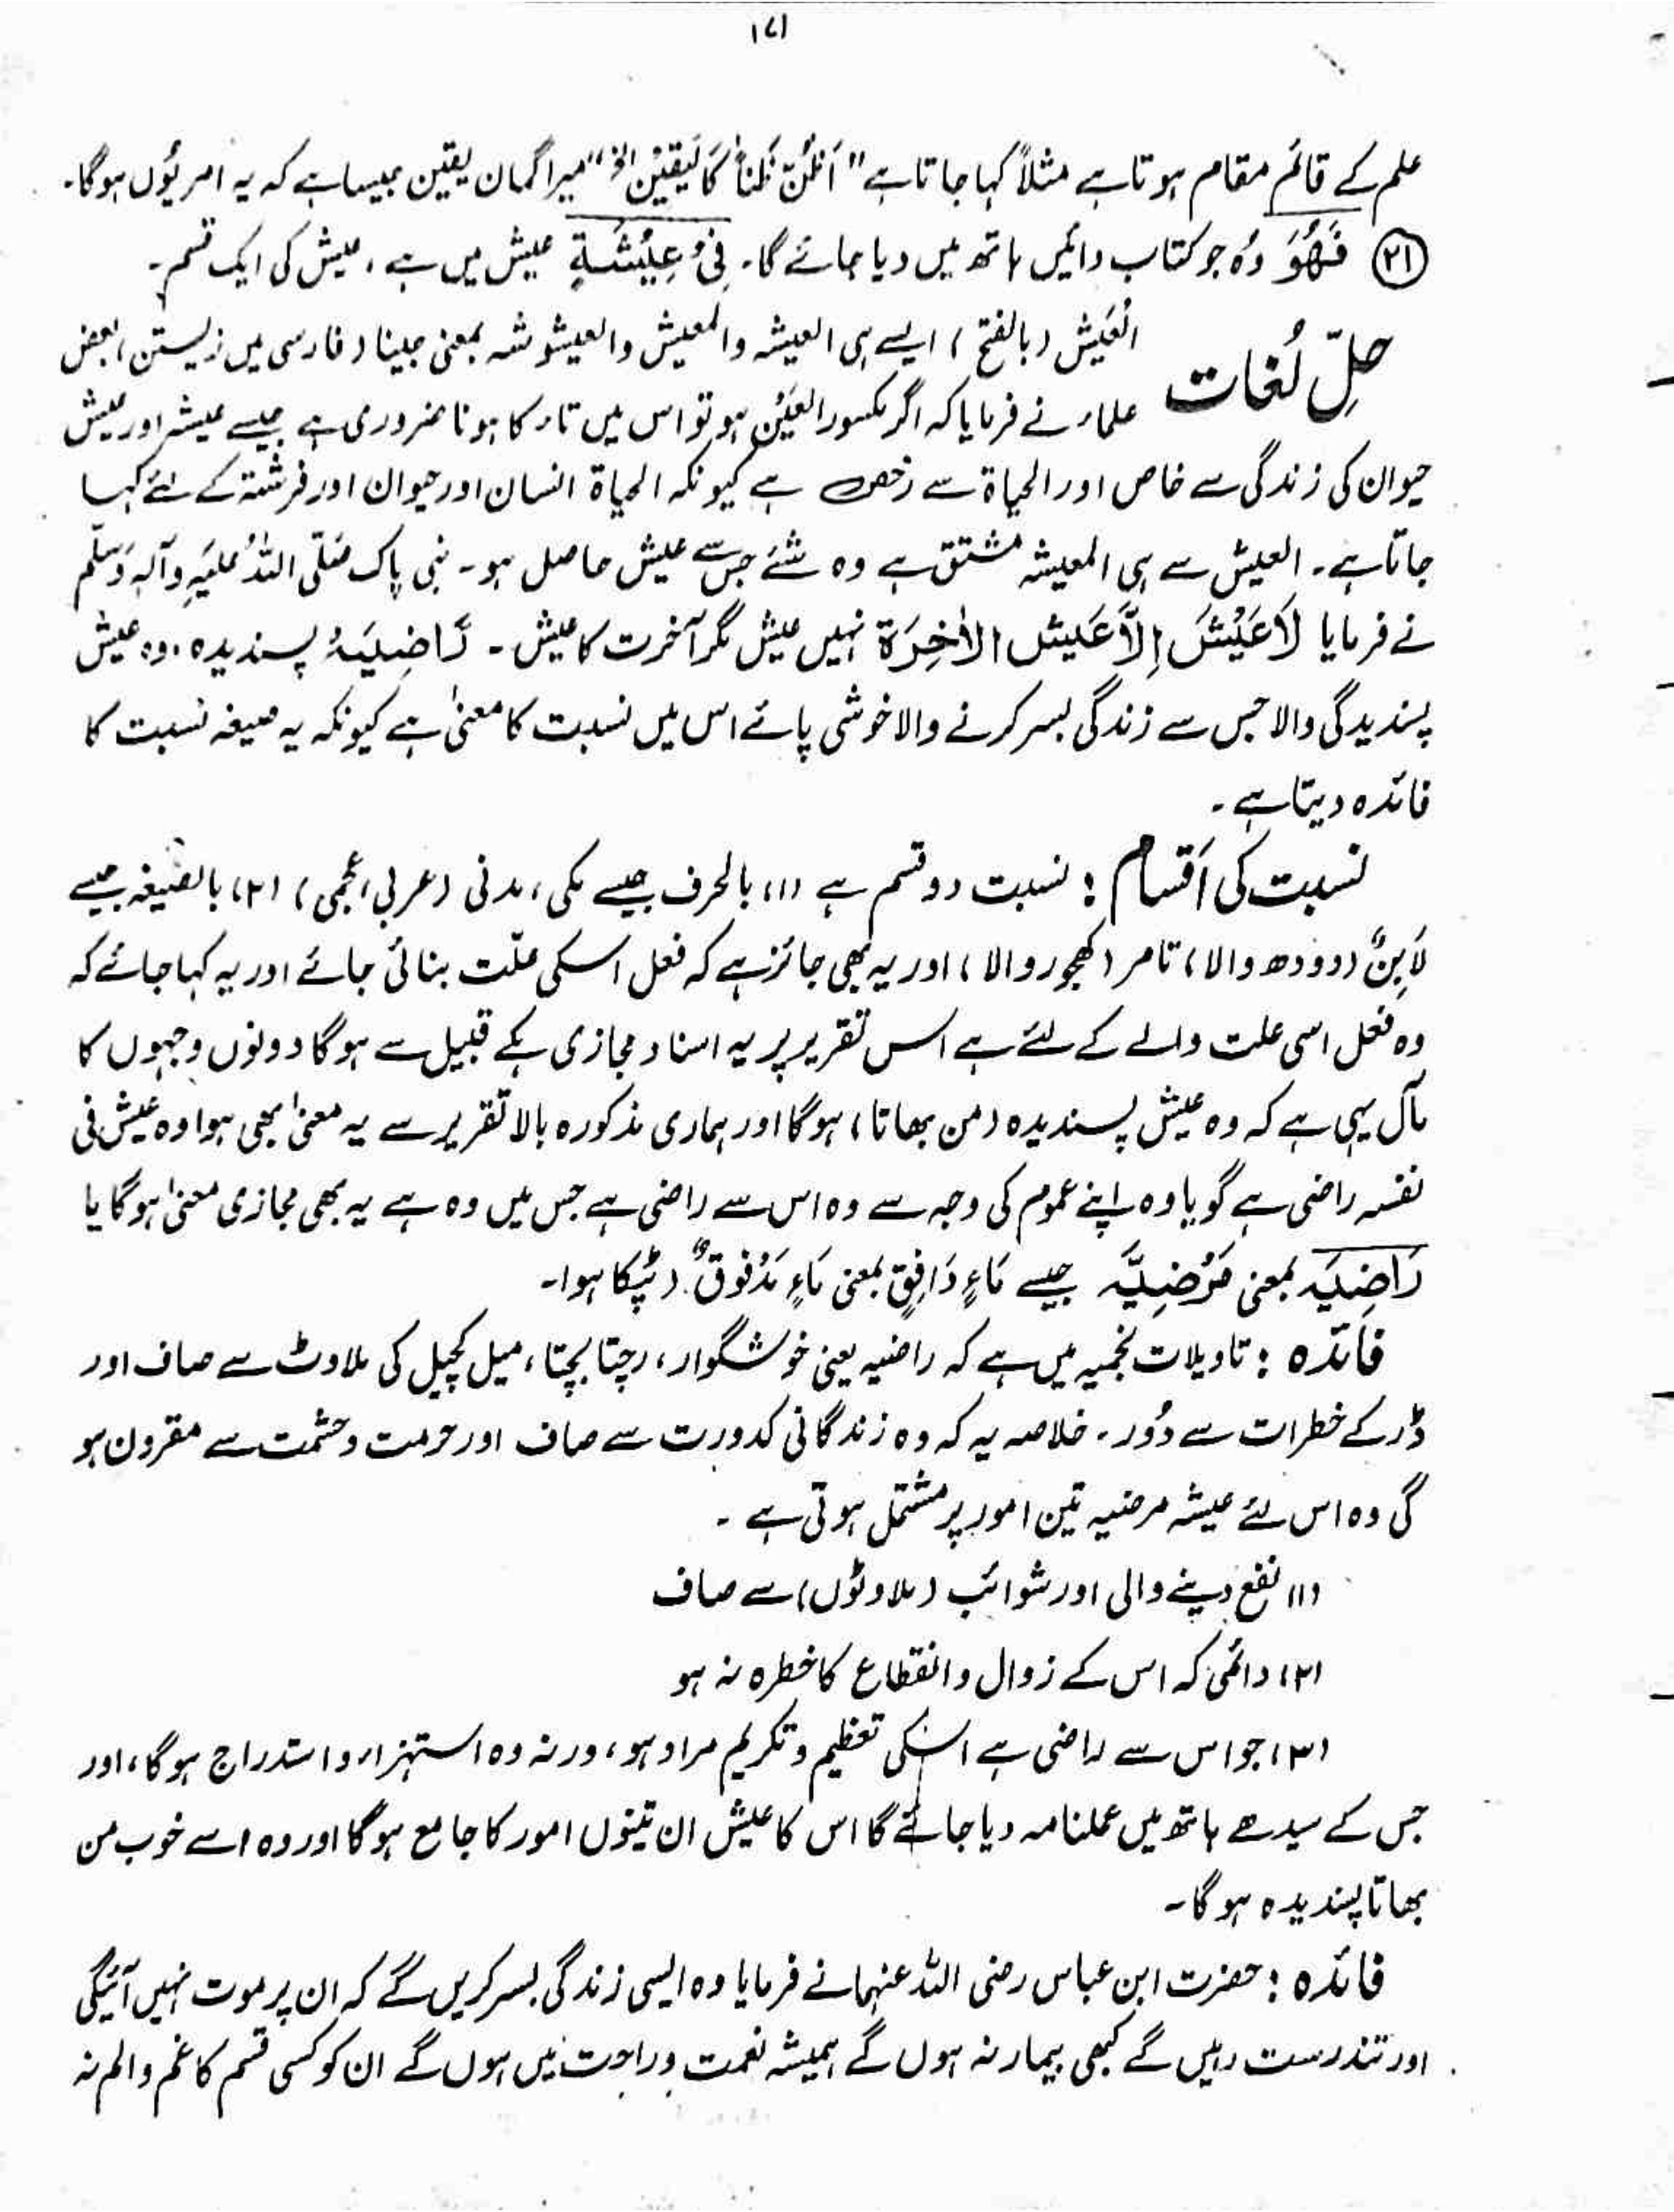 ۱۷۱
علم کے قائم مقام ہوتا ہے مثلاً کہا جاتا ہے "اَظُنُّ ظَنّاً کَالْیَقِیْنِ الخ" میرا گمان یقین جیسا ہے کہ یہ امر یُوں ہوگا۔
(۲۱) فَهُوَ وُہ جو کتاب دائیں ہاتھ میں دیا جائے گا۔ فِیْ عِیْشَةٍ عیش میں ہے، عیش کی ایک قسم۔
حلِّ لُغات
العَیش (بالفتح) ایسے ہی العیشہ والمعیش والعیشوشہ بمعنی جینا (فارسی میں زیستن) بعض
علماء نے فرمایا کہ اگر مکسور العَیْن ہو تو اس میں تاء کا ہونا ضروری ہے جیسے عیشہ اور عیش
حیوان کی زندگی سے خاص اور الحیاۃ سے اخص ہے کیونکہ الحیاۃ انسان اور حیوان اور فرشتہ کے لئے کہا
جاتا ہے۔ العیش سے ہی المعیشہ مشتق ہے وہ شَے جس سے عیش حاصل ہو۔ نبی پاک صَلّی اللّٰہُ عَلَیْہِ وَآلِہٖ وَسَلّم
نے فرمایا لَاعَیْشَ اِلَّاعَیش الاٰخِرَة نہیں عیش مگر آخرت کا عیش۔ رَاضِیَہُ پسندیدہ، وہ عیش
پسندیدگی والا جس سے زندگی بسر کرنے والا خوشی پائے اس میں نسبت کا معنیٰ ہے کیونکہ یہ صیغہ نسبت کا
فائدہ دیتا ہے۔
نسبت کی اَقسام : نسبت دو قسم ہے (۱) بالحرف جیسے مکی، مدنی (عربی، عجمی) (۲) بالصیغہ جیسے
لَابِنٌ (دودھ والا) تامر (کھجور والا) اور یہ بھی جائز ہے کہ فعل اسکی علّت بنائی جائے اور یہ کہا جائے کہ
وہ فعل اسی علت والے کے لئے ہے اس تقریر پر یہ اسناد مجازی کے قبیل سے ہوگا دونوں وجہوں کا
مآل یہی ہے کہ وہ عیش پسندیدہ (من بھاتا) ہوگا اور ہماری مذکورہ بالا تقریر سے یہ معنیٰ بھی ہوا وہ عیش فی
نفسہ راضی ہے گویا وہ اپنے عموم کی وجہ سے وہ اس سے راضی ہے جس میں وہ ہے یہ بھی مجازی معنیٰ ہوگا یا
رَاضِیَہ بمعنی مَرْضِیَّہ جیسے مَاءٍ دَافِقٍ بمعنی مَاءٍ مَدْفُوْقٌ (ٹپکا ہوا۔
فائدہ : تاویلات نجمیہ میں ہے کہ راضیہ یعنی خوشگوار، رچتا پچتا، میل کچیل کی ملاوٹ سے صاف اور
ڈر کے خطرات سے دُور۔ خلاصہ یہ کہ وہ زندگانی کدورت سے صاف اور حرمت وحشمت سے مقرون ہو
گی وہ اس لئے عیشہ مرضیہ تین امور پر مشتمل ہوتی ہے۔
(۱) نفع دینے والی اور شوائب (ملاوٹوں) سے صاف
(۲) دائمی کہ اس کے زوال وانقطاع کا خطرہ نہ ہو
(۳) جو اس سے راضی ہے اسکی تعظیم و تکریم مراد ہو، ورنہ وہ استہزاء و استدراج ہوگا، اور
جس کے سیدھے ہاتھ میں عملنامہ دیا جائے گا اس کا عیش ان تینوں امور کا جامع ہوگا اور وہ اسے خوب من
بھاتا پسندیدہ ہوگا۔
فائدہ : حضرت ابن عباس رضی اللّٰہ عنہما نے فرمایا وہ ایسی زندگی بسر کریں گے کہ ان پر موت نہیں آئیگی
اور تندرست رہیں گے کبھی بیمار نہ ہوں گے ہمیشہ نعمت و راحت میں ہوں گے ان کو کسی قسم کا غم و الم نہ